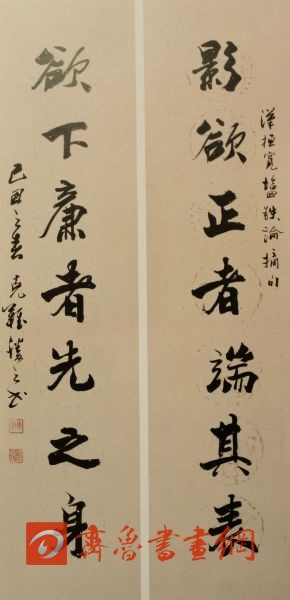 漢桓寬塩鉄論摘句
影欲正者端其表
欲下廉者先之身
己丑之春克難勝之书
齊魯書畫網